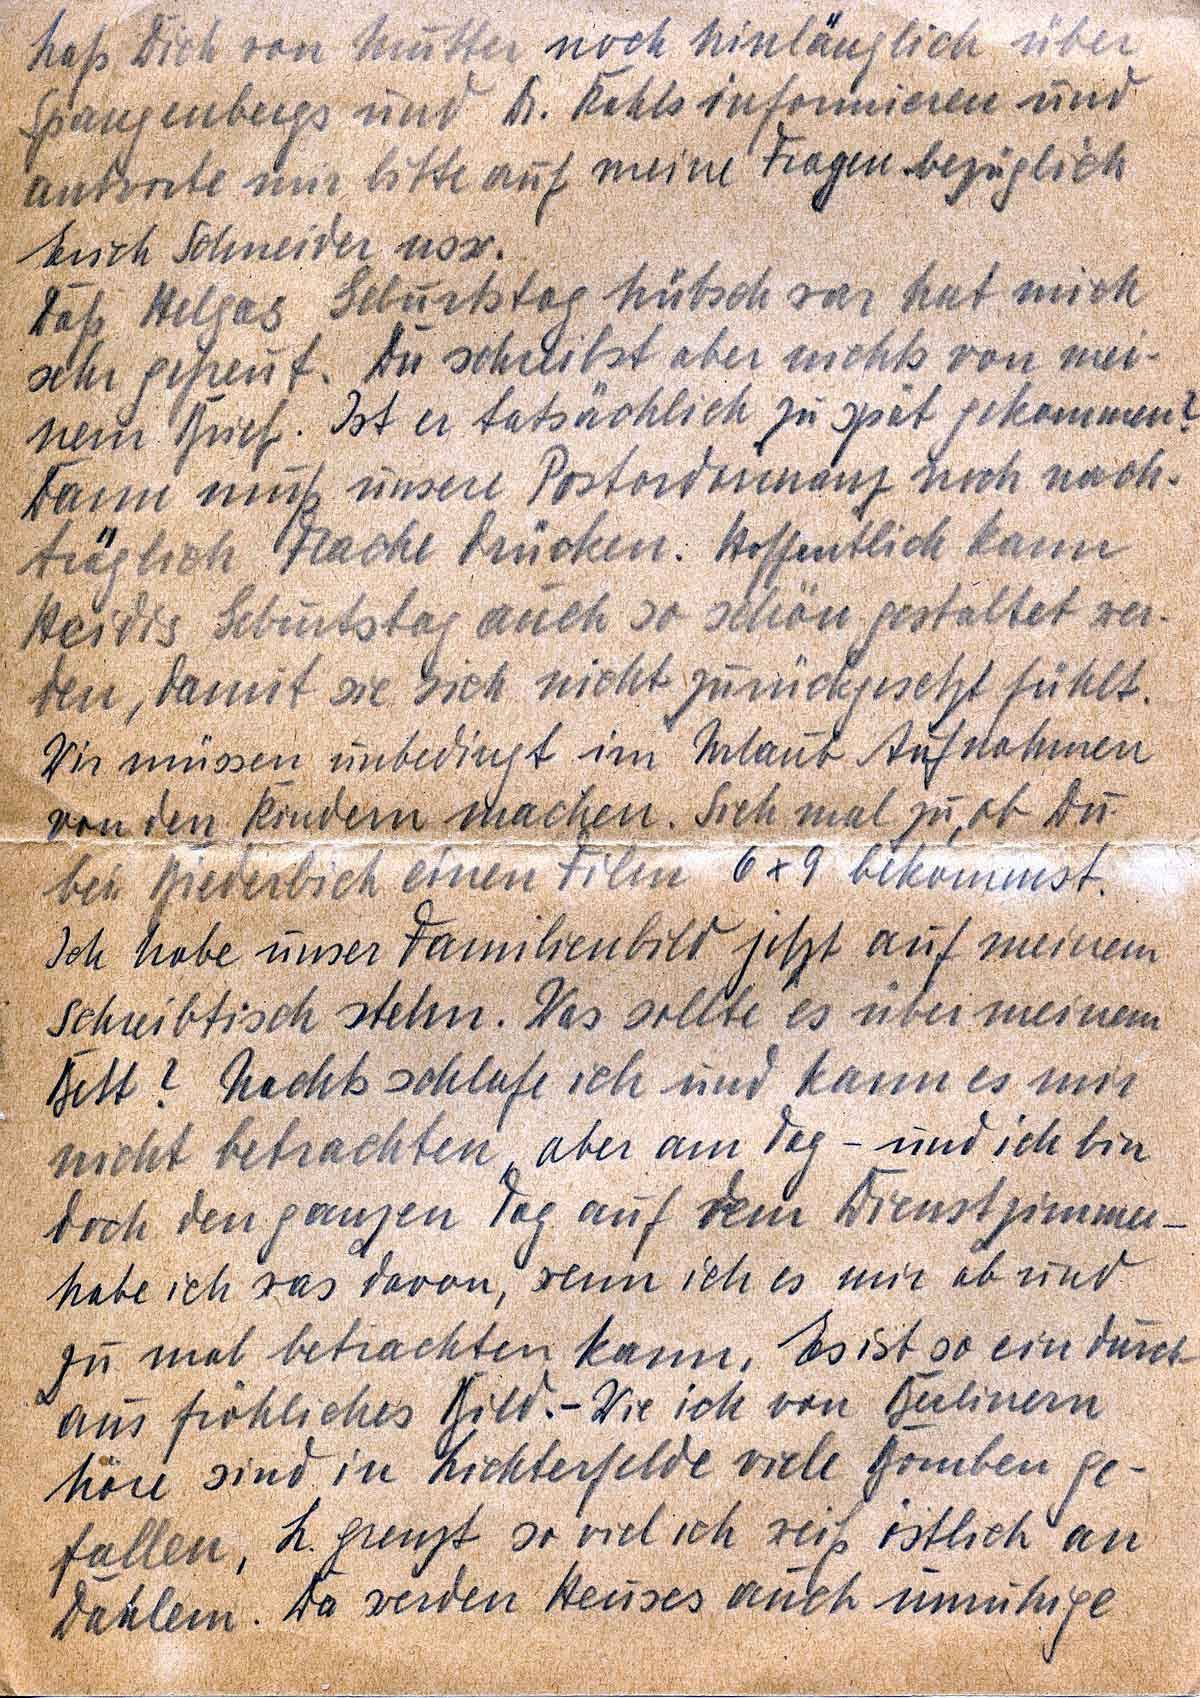 laß Dich von Mutter noch hinlänglich über
Spangenbergs und Dr. Kohls informieren und
antworte mir bitte auf meine Fragen bezüglich
Erich Schneider usw.
Daß Helgas Geburtstag hübsch war hat mich
sehr gefreut. Du schreibst aber nichts von mei-
nem Brief. Ist er tatsächlich zu spät gekommen?
Dann muß unsere Postordonnanz noch nach-
träglich Flache drücken. Hoffentlich kann
Heidis Geburtstag auch so schön gestaltet wer-
den, damit sie sich nicht zurückgesetzt fühlt.
Wir müssen unbedingt im Urlaub Aufnahmen
von den Kindern machen. Sieh mal zu, ob Du
bei Biederbick einen Film 6x9 bekommst.
Ich habe unser Familienbild jetzt auf meinem
Schreibtisch stehn. Was sollte es über meinem
Bett? Nachts schlafe ich und kann es mir
nicht betrachten, aber am Tag – und ich bin
doch den ganzen Tag auf dem Dienstzimmer –
habe ich was davon, wenn ich es mir ab und
zu mal betrachten kann. Es ist so ein durch-
aus fröhliches Bild. – Wie ich von Berlinern
höre sind in Lichterfelde viele Bomben ge-
fallen, L. grenzt so viel ich weiß östlich an
Dahlem. Da werden Heuses auch unruhige